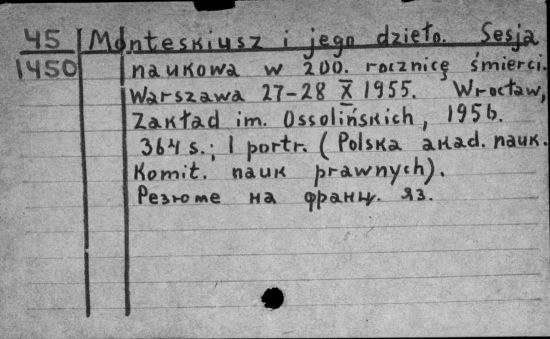 45
1450
Monteskiusz i jego dzieło. Sesja
naukowa w 200. rocznicę śmierci.
Warszawa 27-28 X 1955. Wrocław,
Zakład im. Ossolińskich, 1956.
364 s.; 1 portr. (Polska akad. nauk.
Komit. nauk prawnych).
Резюме на франц. яз.